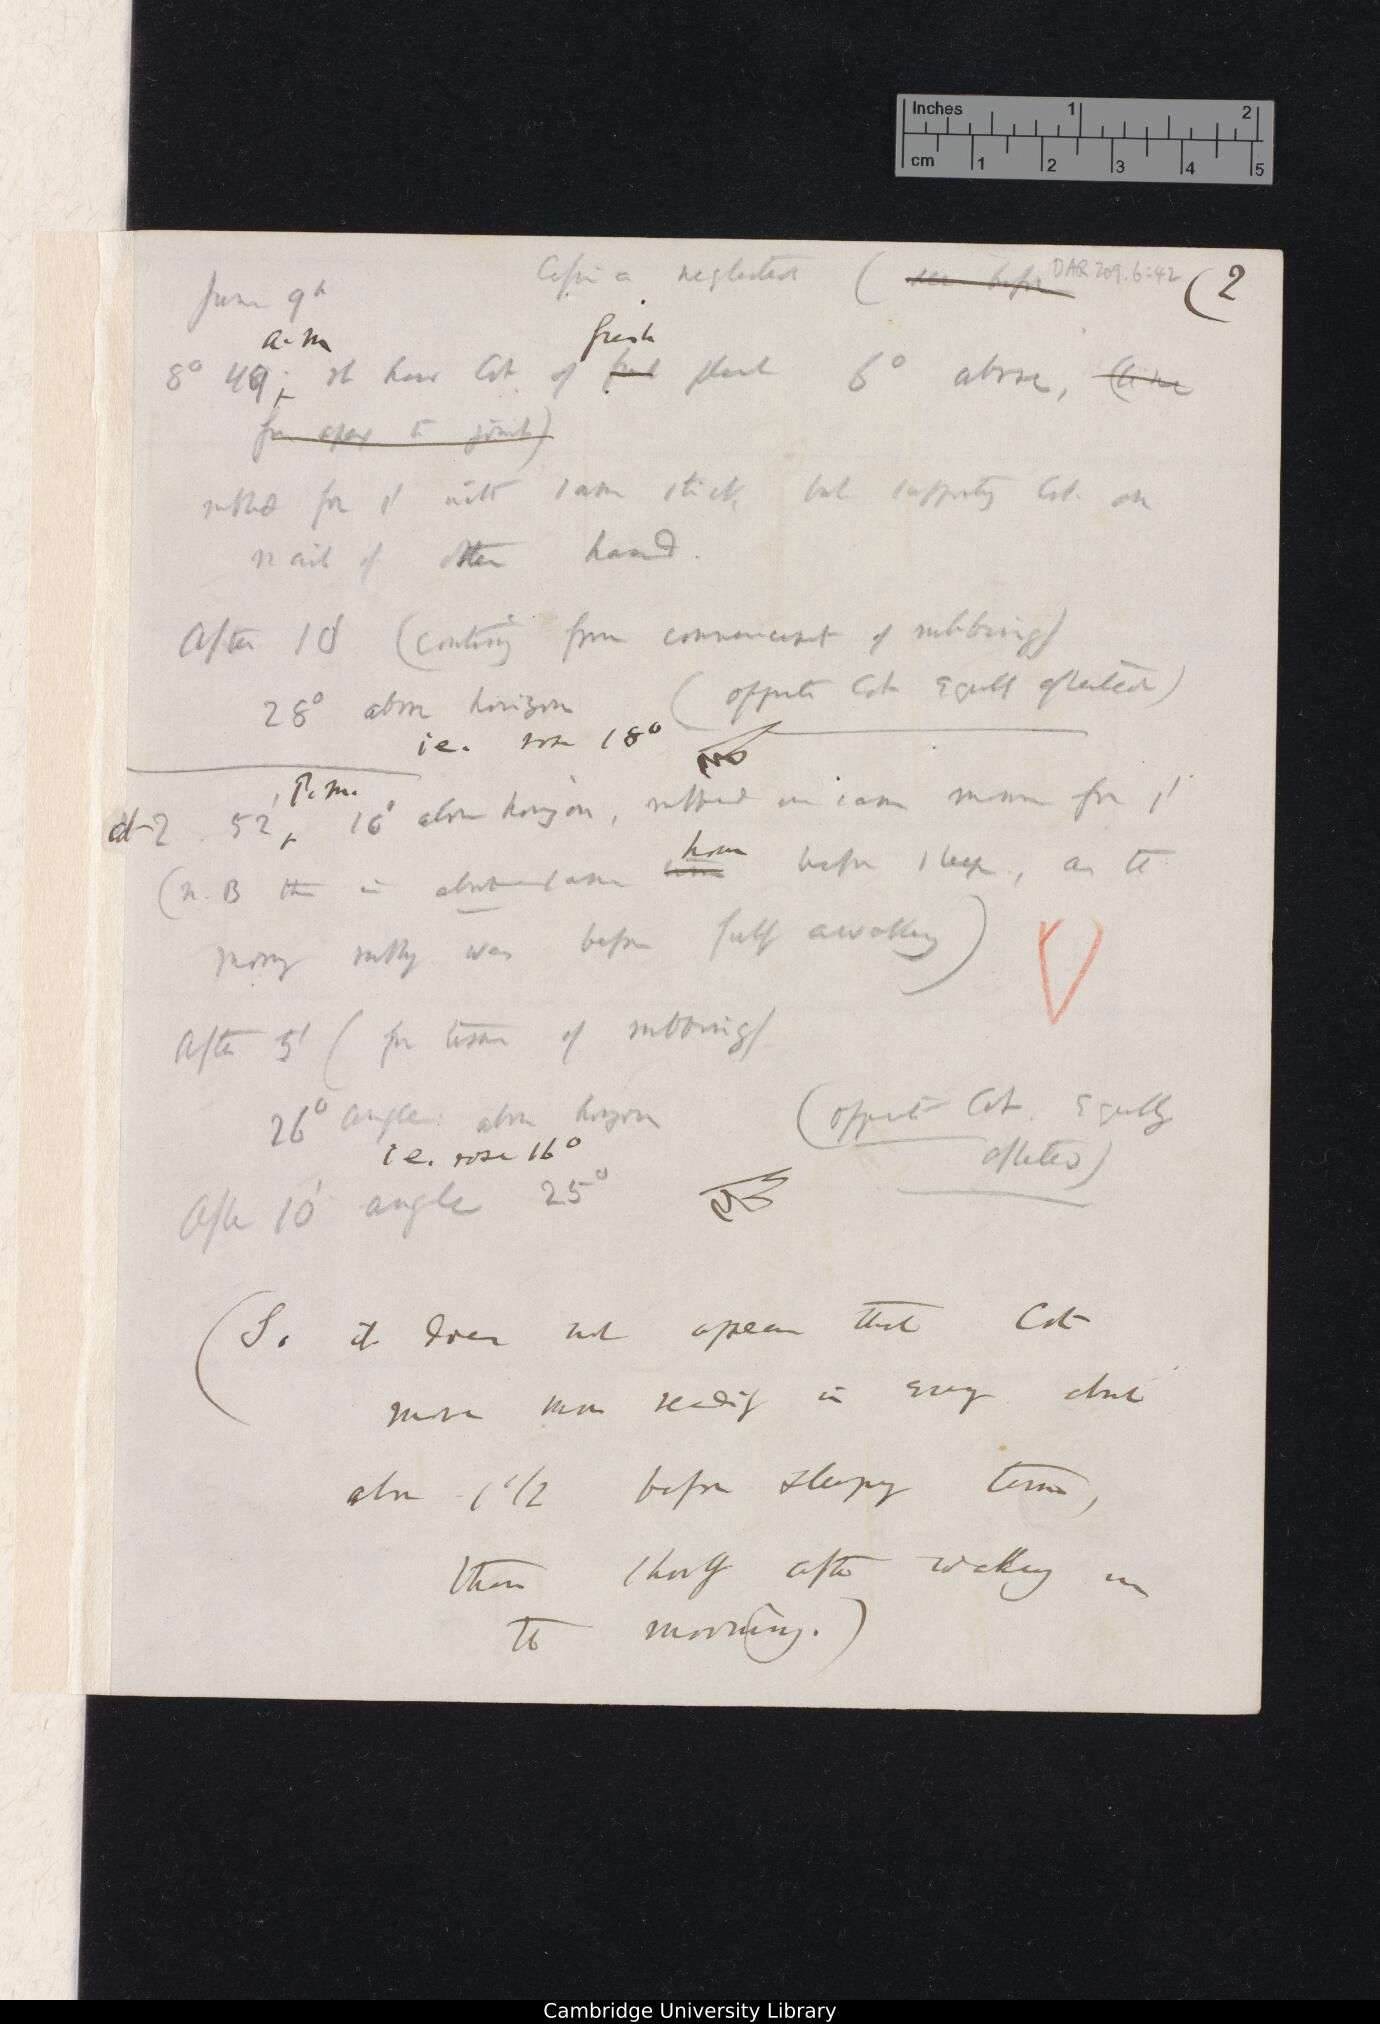 Cassia neglecta (see before DAR 209.6:42 (2
June 9th
a.m fresh
8° 49'; rt hand Cot. of plant 6° above, (a line
from apex to joint)
rubbed for 1' with same stick, but supporting Cot. on
nail of other hand.
After 10' (counting from commencement of rubbing)
28° above horizon (opposite Cot. equally affected)
i.e. rose 18° No
P.m.
at 2. 52' 10° above horizon, rubbed in same manner for 1'
hour
(N.B this is about same before sleep, as the
morning rubbing was before full awaking)
After 5' (from time of rubbing)
26° angle above horizon (opposite Cot. equally
i.e. rose 16° affected)
After 10' angle 25°
(So it does not appear that Cot
move more readily in evening about
above 1 1/2 before sleeping time,
than shortly after waking in
the morning.)
Inches 1 2
cm 1 2 3 4 5
Cambridge University Library